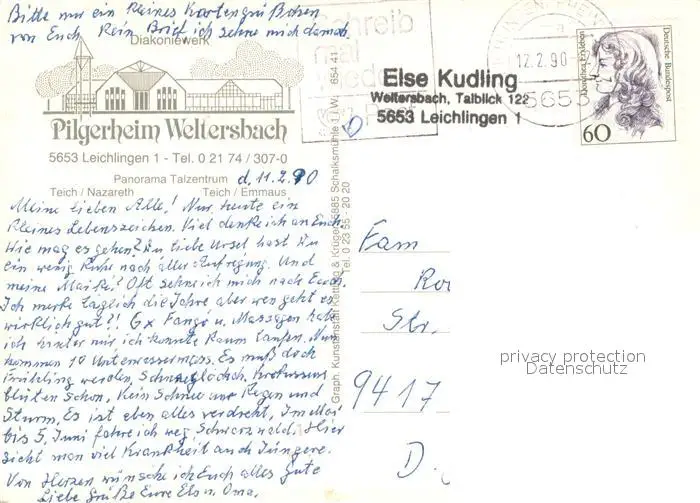 Bitte nur ein kleines Kartengrüßchen
von Euch. Kein Brief ich sehne mich danach
Diakoniewerk
Pilgerheim Weltersbach
5653 Leichlingen 1 - Tel. 0 21 74 / 307-0
Panorama Talzentrum
Teich / Nazareth Teich / Emmaus
d. 11.2.90
Meine lieben Alle! Nur heute ein
kleines Lebenszeichen. Viel denke ich an Euch
Wie mag es gehen? Du liebe Ursel hast Du
ein wenig Ruhe nach aller Aufregung. Und
meine Maike? Oft sehne ich mich nach Euch.
Ich merke täglich die Jahre aber wem geht es
wirklich gut?! 6x Fango u. Massagen habe
ich hinter mir ich konnte kaum laufen. Nun
kommen 10 Unterwassermass. Es muß doch
Frühling werden, Schneeglöckch. Krokusse
blühen schon. Kein Schnee nur Regen und
Sturm. Es ist eben alles verdreht. Im Mai
bis 5. Juni fahre ich weg, Schwarzwald. Hier
sieht man viel Krankheit auch Jüngere.
Von Herzen wünsche ich Euch alles Gute
Liebe Grüße Eure Els u. Oma.
654 41
Graph. Kunstanstalt Kettling & Krüger, 5885 Schalksmühle i. W.
Tel. 0 23 55 - 20 20
Schreib
mal
wieder
Post
12.2.90
5653
Else Kudling
Weltersbach, Talblick 122
5653 Leichlingen 1
Deutsche Bundespost
60
Fam
Str.
9417
D.
privacy protection
Datenschutz